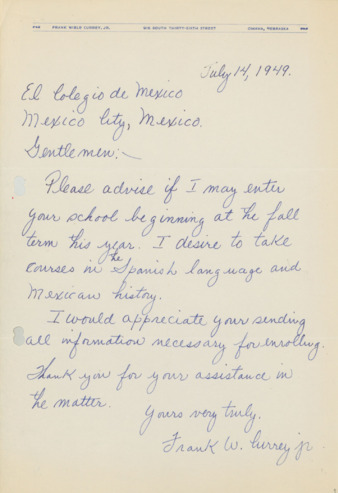 FRANK WIELD CURREY, JR. SOUTH THIRTY-SIXTH STREET OMAHA, NEBRASKA
July 14, 1949.
El Colegio de Mexico
Mexico City, Mexico.
Gentlemen:—
Please advise if I may enter
your school beginning at the fall
term this year. I desire to take
courses in the Spanish language and
Mexican history.
I would appreciate your sending
all information necessary for enrolling.
Thank you for your assistance in
the matter.
Yours very truly.
Frank W. Currey jr